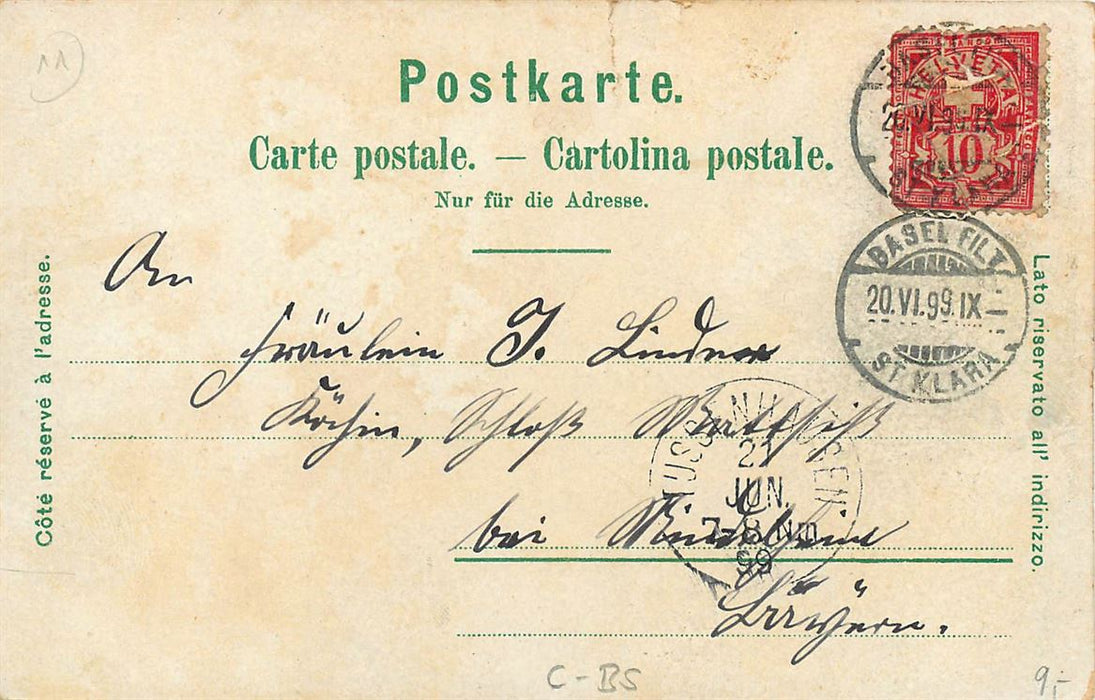 11
Postkarte.
Carte postale. — Cartolina postale.
Nur für die Adresse.
Côté réservé à l'adresse.
Lato riservato all' indirizzo.
FRANCO
HELVETIA
10
20.VI.99.IX–
BASEL FIL.1
20.VI.99.IX–
ST. KLARA
An
Fräulein J. Lindner
Köchin, Schloß
21
JUN.
7-8 Nm
99
bei Mindelheim
Bayern.
C-BS
9,-